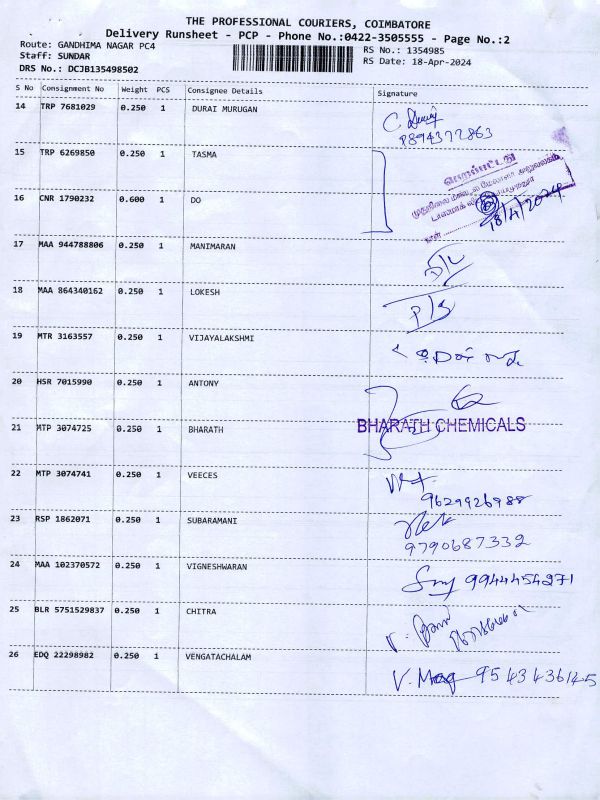 THE PROFESSIONAL COURIERS, COIMBATORE
Delivery Runsheet - PCP - Phone No.:0422-3505555 - Page No.:2
Route: GANDHIMA NAGAR PC4
RS No.: 1354985
Staff: SUNDAR
RS Date: 18-Apr-2024
DRS No.: DCJB135498502
S No Consignment No Weight PCS Consignee Details Signature
14 TRP 7681029 0.250 1 DURAI MURUGAN
15 TRP 6269850 0.250 1 TASMA
16 CNR 1790232 0.600 1 DO
18/4/2024
17 MAA 944788806 0.250 1 MANIMARAN
18 MAA 864340162 0.250 1 LOKESH
P/S
19 MTR 3163557 0.250 1 VIJAYALAKSHMI
20 HSR 7015990 0.250 1 ANTONY
21 MTP 3074725 0.250 1 BHARATH
BHARATH CHEMICALS
22 MTP 3074741 0.250 1 VEECES
9629926988
23 RSP 1862071 0.250 1 SUBARAMANI
9790687332
24 MAA 102370572 0.250 1 VIGNESHWARAN
9944454271
25 BLR 5751529837 0.250 1 CHITRA
26 EDQ 22298982 0.250 1 VENGATACHALAM